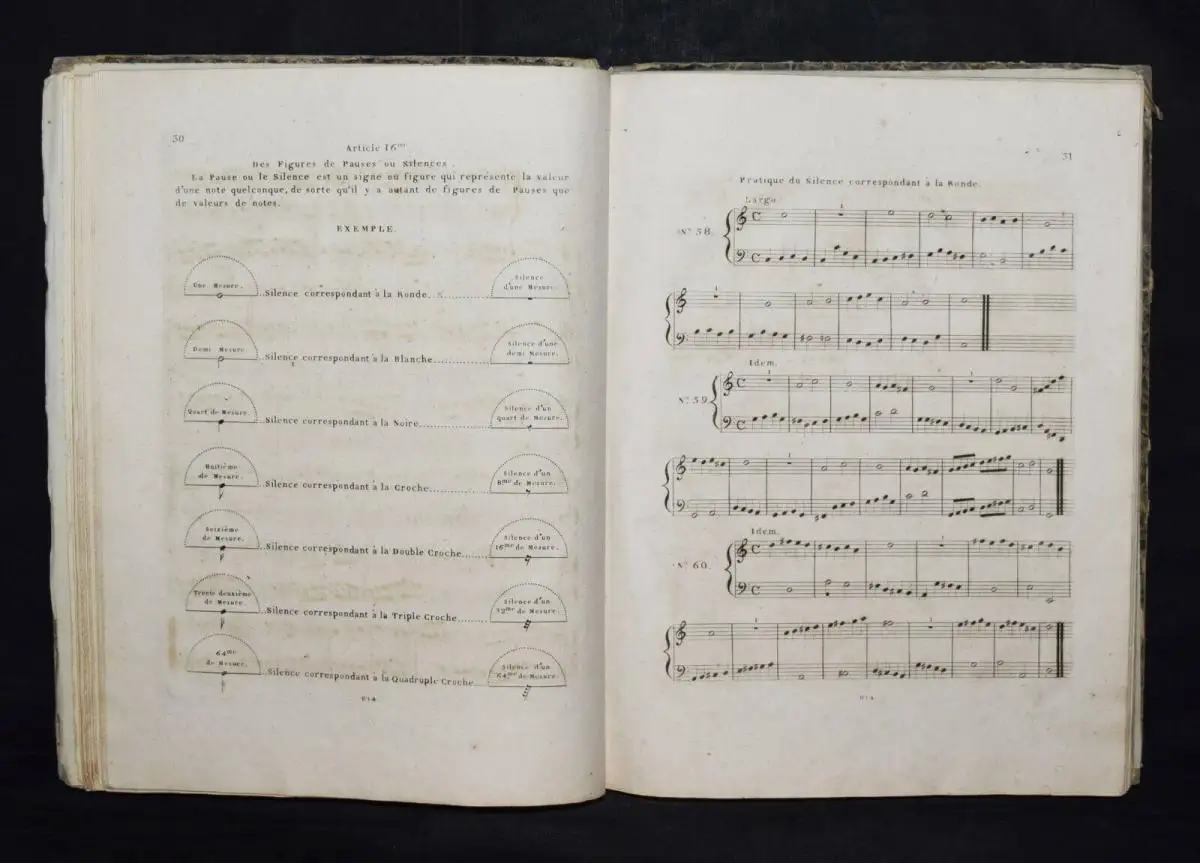 30
Article 16me
Des Figures de Pauses ou Silences.
La Pause ou le Silence est un signe ou figure qui représente la valeur
d'une note quelconque, de sorte qu'il y a autant de figures de Pauses que
de valeurs de notes.
EXEMPLE.
Une Mesure.
Silence correspondant à la Ronde.
Silence
d'une Mesure.
Demi Mesure
Silence correspondant à la Blanche
Silence d'une
demi Mesure.
Quart de Mesure.
Silence correspondant à la Noire
Silence d'un
quart de Mesure.
Huitième
de Mesure.
Silence correspondant à la Croche
Silence d'un
8me de Mesure.
Seizième
de Mesure.
Silence correspondant à la Double Croche
Silence d'un
16me de Mesure.
Trente deuxième
de Mesure.
Silence correspondant à la Triple Croche
Silence d'un
32me de Mesure.
64me
de Mesure.
Silence correspondant à la Quadruple Croche
Silence d'un
64me de Mesure.
31
Pratique du Silence correspondant à la Ronde.
Largo.
N° 58.
Idem.
N° 59.
Idem.
N° 60.